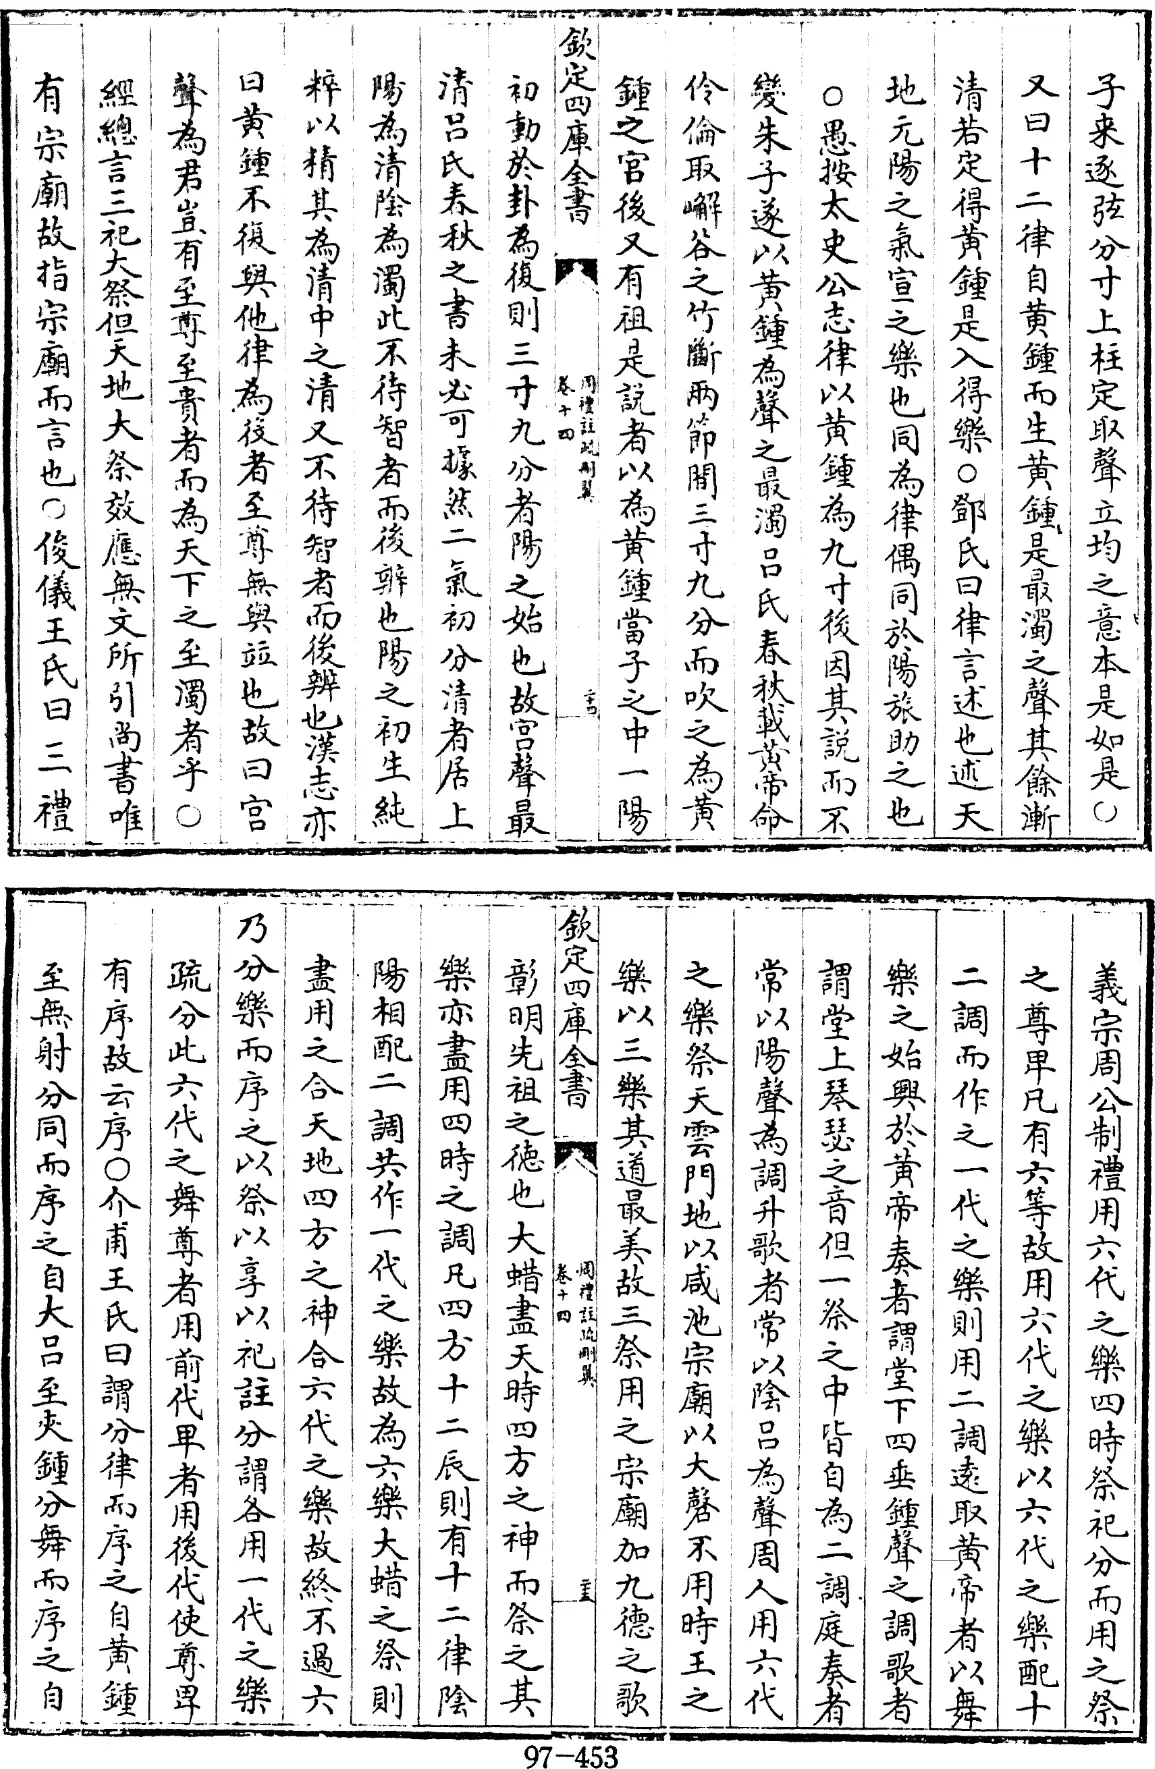 子来逐弦分寸上柱定取聲立均之意本是如是○
又曰十二律自黄鍾而生黄鍾是最濁之聲其餘漸
清若定得黄鍾是入得樂○鄧氏曰律言述也述天
地元陽之氣宣之樂也同為律偶同於陽旅助之也
○愚按太史公志律以黄鍾為九寸後因其説而不
變朱子遂以黄鍾為聲之最濁吕氏春秋載黄帝命
伶倫取嶰谷之竹斷兩節間三寸九分而吹之為黄
鍾之宫後又有祖是説者以為黄鍾當子之中一陽
欽定四庫全書
周禮註疏刪翼
卷十四
初動於卦為復則三寸九分者陽之始也故宫聲最
清吕氏春秋之書未必可據然二氣初分清者居上
陽為清陰為濁此不待智者而後辨也陽之初生純
粹以精其為清中之清又不待智者而後辨也漢志亦
曰黄鍾不復與他律為役者至尊無與竝也故曰宫
聲為君豈有至尊至貴者而為天下之至濁者乎○
經總言三祀大祭但天地大祭效應無文所引尚書唯
有宗廟故指宗廟而言也○俊儀王氏曰三禮
義宗周公制禮用六代之樂四時祭祀分而用之祭
之尊卑凡有六等故用六代之樂以六代之樂配十
二調而作之一代之樂則用二調遠取黄帝者以舞
樂之始興於黄帝奏者謂堂下四垂鍾聲之調歌者
謂堂上琴瑟之音但一祭之中皆自為二調庭奏者
常以陽聲為調升歌者常以陰吕為聲周人用六代
之樂祭天雲門地以咸池宗廟以大磬不用時王之
樂以三樂其道最美故三祭用之宗廟加九德之歌
欽定四庫全書
周禮註疏刪翼
卷十四
彰明先祖之德也大蜡盡天時四方之神而祭之其
樂亦盡用四時之調凡四方十二辰則有十二律陰
陽相配二調共作一代之樂故為六樂大蜡之祭則
盡用之合天地四方之神合六代之樂故終不過六
乃分樂而序之以祭以享以祀註分謂各用一代之樂
疏分此六代之舞尊者用前代卑者用後代使尊卑
有序故云序○介甫王氏曰謂分律而序之自黄鍾
至無射分同而序之自大吕至夾鍾分舞而序之自
97-453